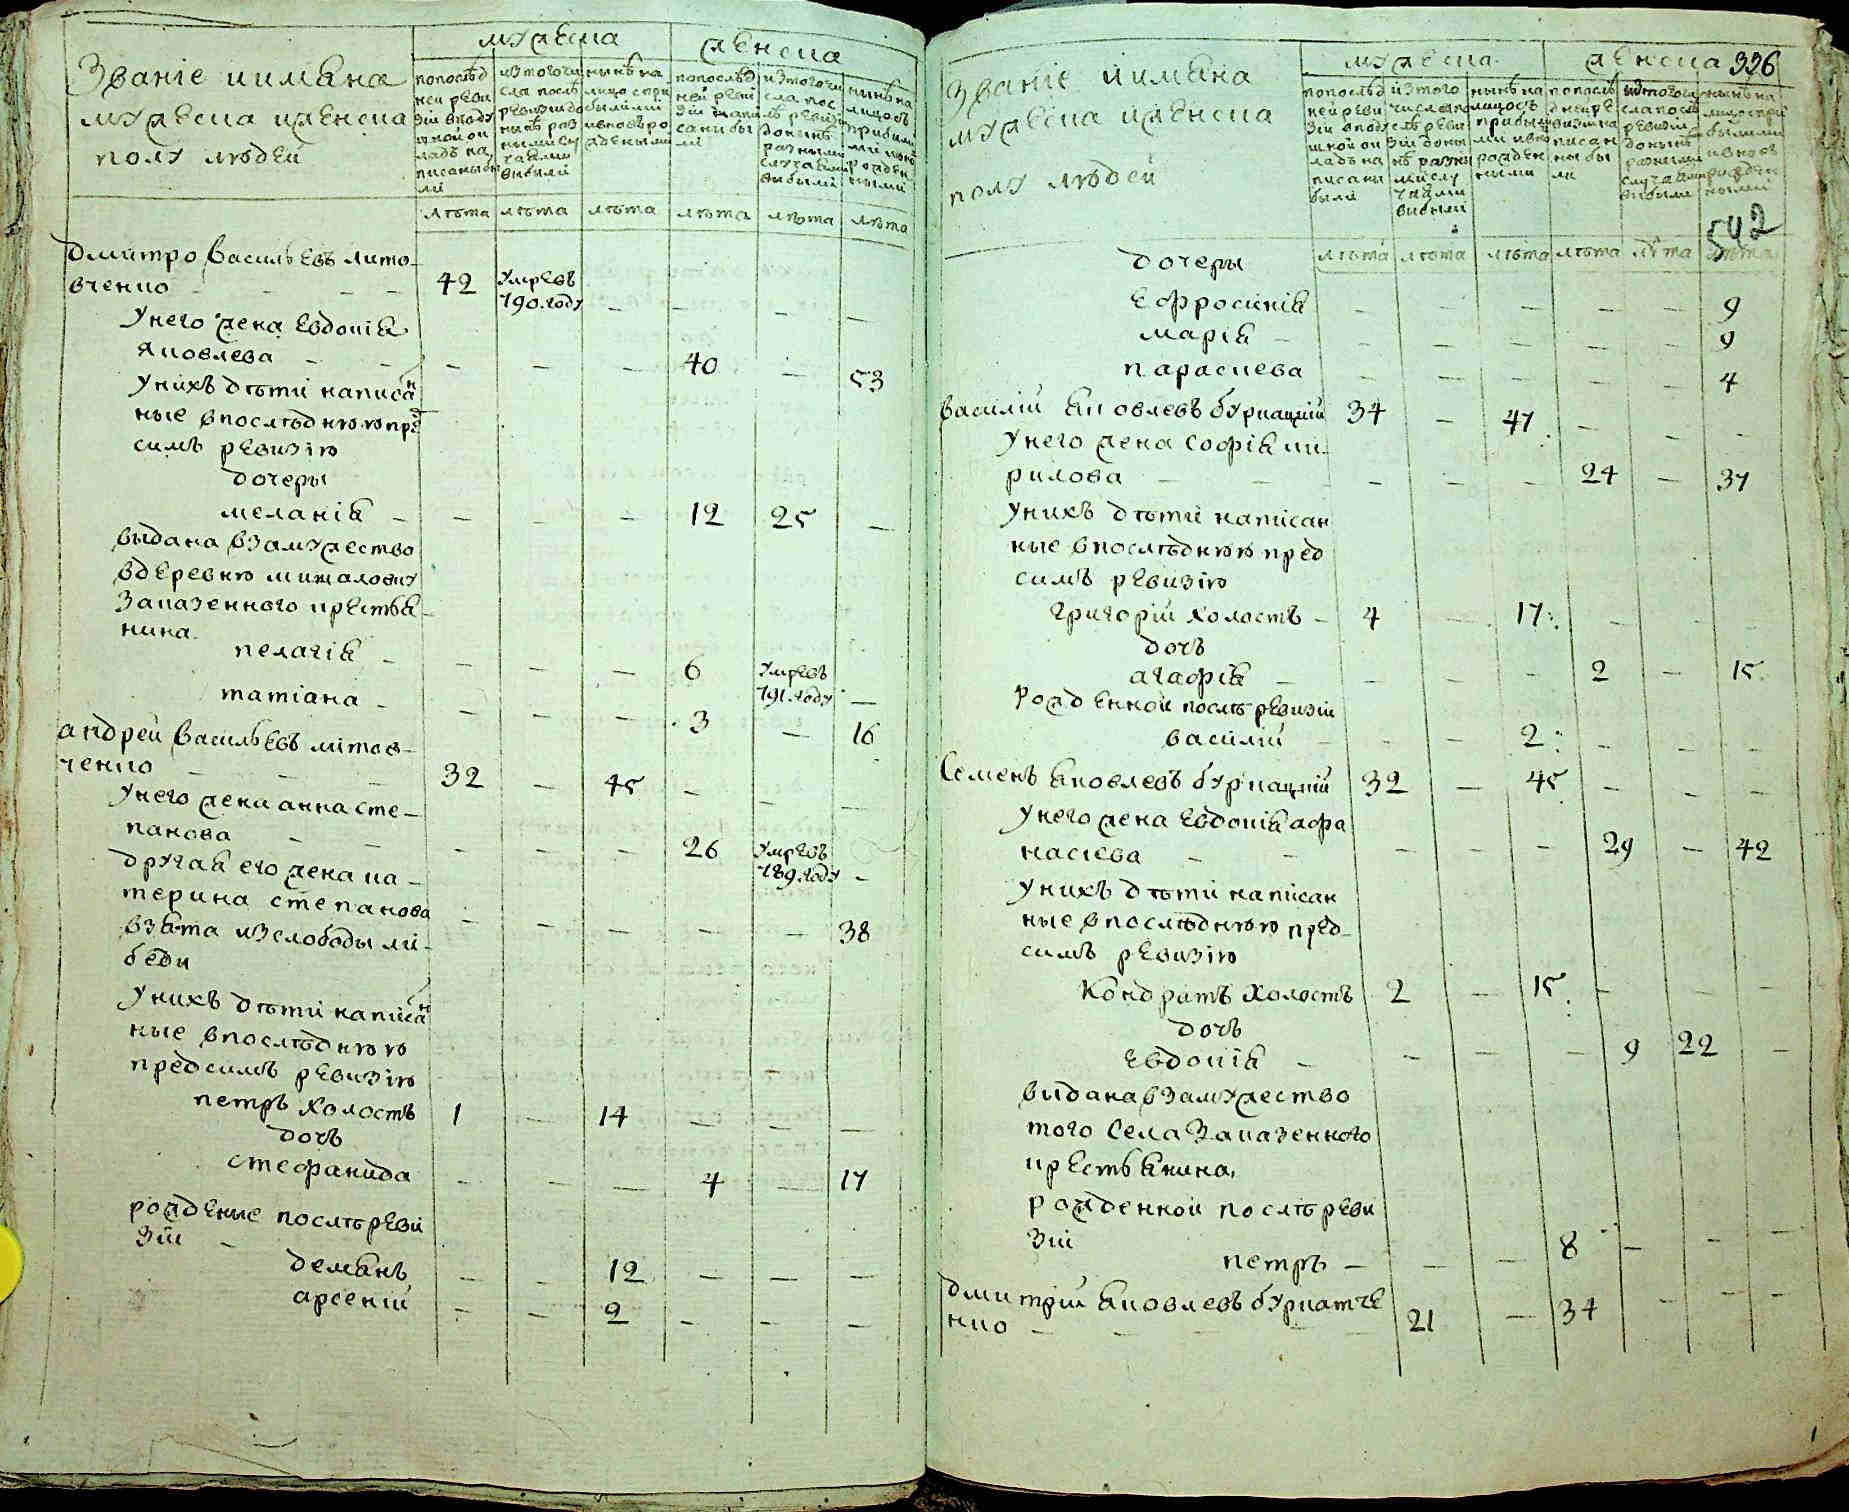 Званіе иимѧна
мужеска иженска
полу людей
мужеска
женска
попослѣд
ней реви
зіи вподу
шной ок
ладъ на
писаны бы
ли
изтогочи
сла послѣ
ревизіи до
нынѣ раз
ными слу
чаями
выбыли
нынѣ на
лицо спри
былими
ивновь ро
жденными
попослѣд
ней реви
зіи напи
саны бы
ли
изтогочи
сла пос
лѣ ревизіи
донынѣ
разными
случаями
выбыли
нынѣ на
лицо съ
прибыли
ми ивно
рожден
ными
лѣта лѣта лѣта лѣта лѣта лѣта
дмитро васильевъ лито-
вченко - - - 42 умревъ 790. году - - - -
унего жена евдокіѧ
Яковлева - - - - - 40 - 53
унихъ дѣти написан
ные впослѣднюю пред
симъ ревизію
дочеры
меланіѧ - - - - 12 25 -
выдана взамужество
вдеревню михаловку
Заказенного крестьѧ-
нина.
пелагіѧ - - - - 6 умревъ 791. году -
татіана - - - - 3 - 16
андрей васильевъ литов-
ченко - - - 32 - 45 - - -
унего жена анна сте-
панова - - - - - 26 умревъ 789. году -
другаѧ его жена ка-
терина степанова - - - - - 38
взѧта изслободы ли-
беди
унихъ дѣти написан
ные впослѣднюю
предсимъ ревизію
петръ холостъ 1 - 14 - - -
дочъ
стефанида - - - 4 - 17
рожденые послѣреви
зіи -
демѧнъ - - 12 - - -
арсеній - - 2 - - -
326
Званіе иимѧна
мужеска иженска
полу людей
мужеска
женска
попослѣд
ней реви
зіи вподу
шной ок
ладъ на
писаны
были
изтого
числа по
слѣ реви
зіи доны
нѣ разны
ми слу
чаѧми
выбыли
нынѣ на
лицо съ
прибылы
ми ивно
рожден
ными
попослѣ
дней ре
визіи на
писан
ны бы
ли
изтогочи
сла послѣ
ревизіи
донынѣ
разными
случаями
выбыли
нынѣ на
лицо спри
былими
ивновь
рожден
ными
542
лѣта лѣта лѣта лѣта лѣта лѣта
дочеры
ефросиніѧ - - - - - 9
маріѧ - - - - - - 9
параскева - - - - - 4
василій ѧковлевъ буркацкій 34 - 47 - - -
унего жена софіѧ ки-
рилова - - - - - - 24 - 37
унихъ дѣти написан
ные впослѣднюю пред
симъ ревизію
григорій холостъ - 4 - 17 - - -
дочъ
агафіѧ - - - - 2 - 15
рожденной послѣ ревизіи
василій - - - 2 - - -
Семенъ ѧковлевъ буркацкій 32 - 45 - - -
унего жена евдокіѧ афа
насіева - - - - - 29 - 42
унихъ дѣти написан
ные впослѣднюю пред-
симъ ревизію
Кондратъ холостъ 2 - 15 - - -
дочъ
евдокіѧ - - - - 9 22 -
выдана взамужество
того села Заказенного
крестьѧнина,
рожденной послѣ реви
зіи
петръ - - - 8 - - -
дмитрій ѧковлевъ буркатче
нко - - - - 21 - 34 - - -